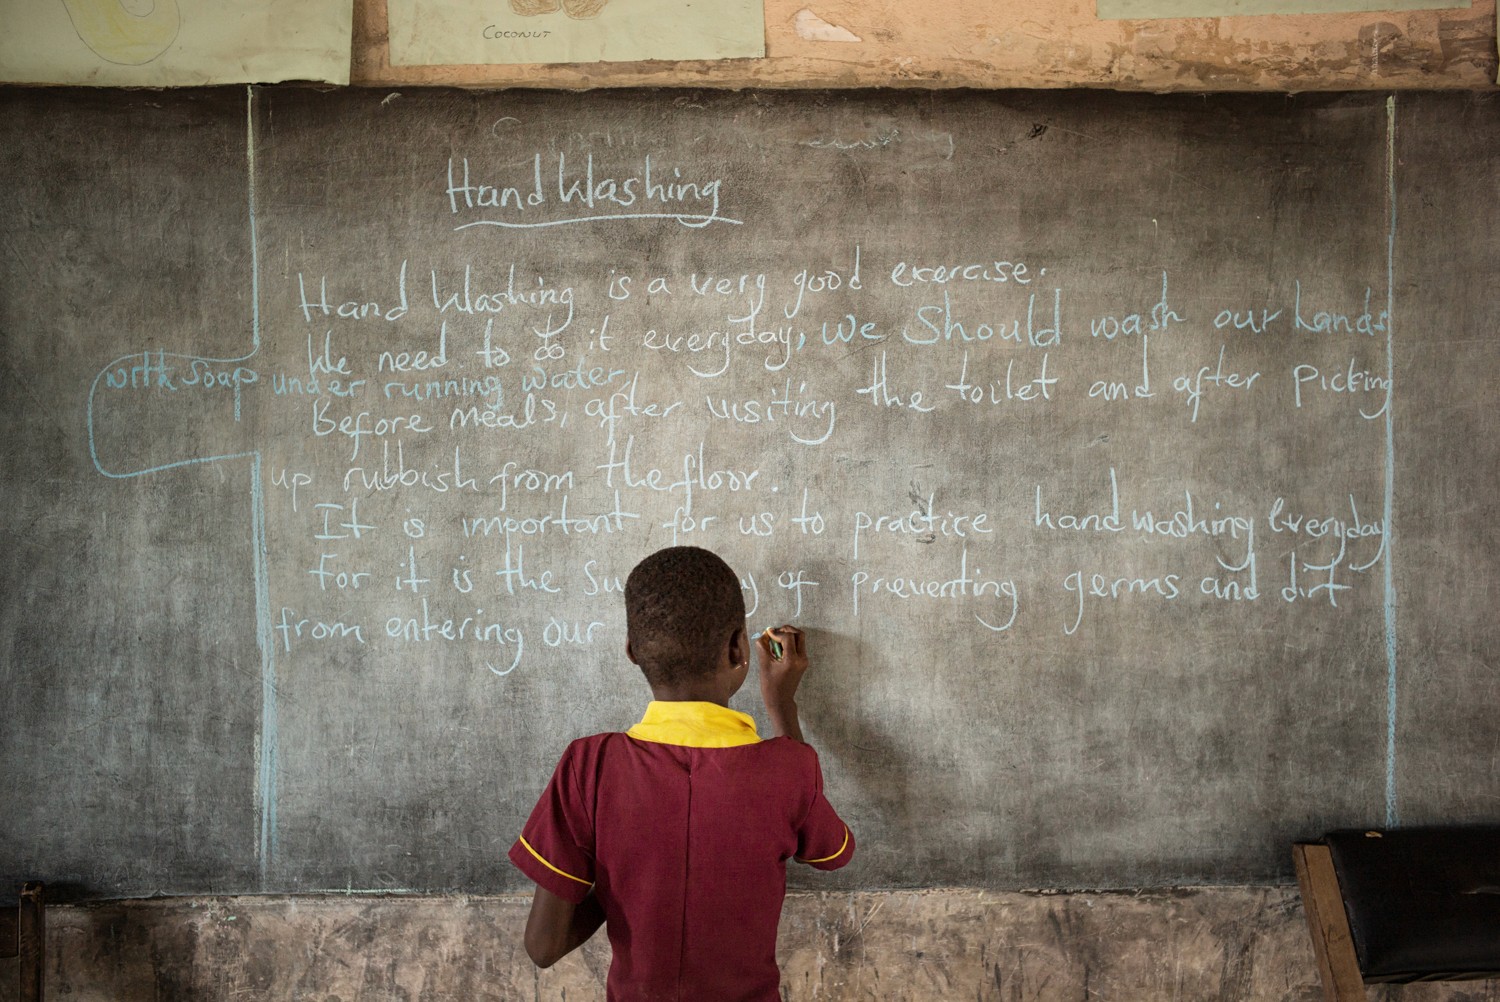 Coconut
Hand Washing
Hand Washing is a very good exercise.
We need to do it everyday, we should wash our hands
with soap under running water,
Before meals, after visiting the toilet and after picking
up rubbish from the floor.
It is important for us to practice handwashing everyday
for it is the of preventing germs and dirt
from entering our